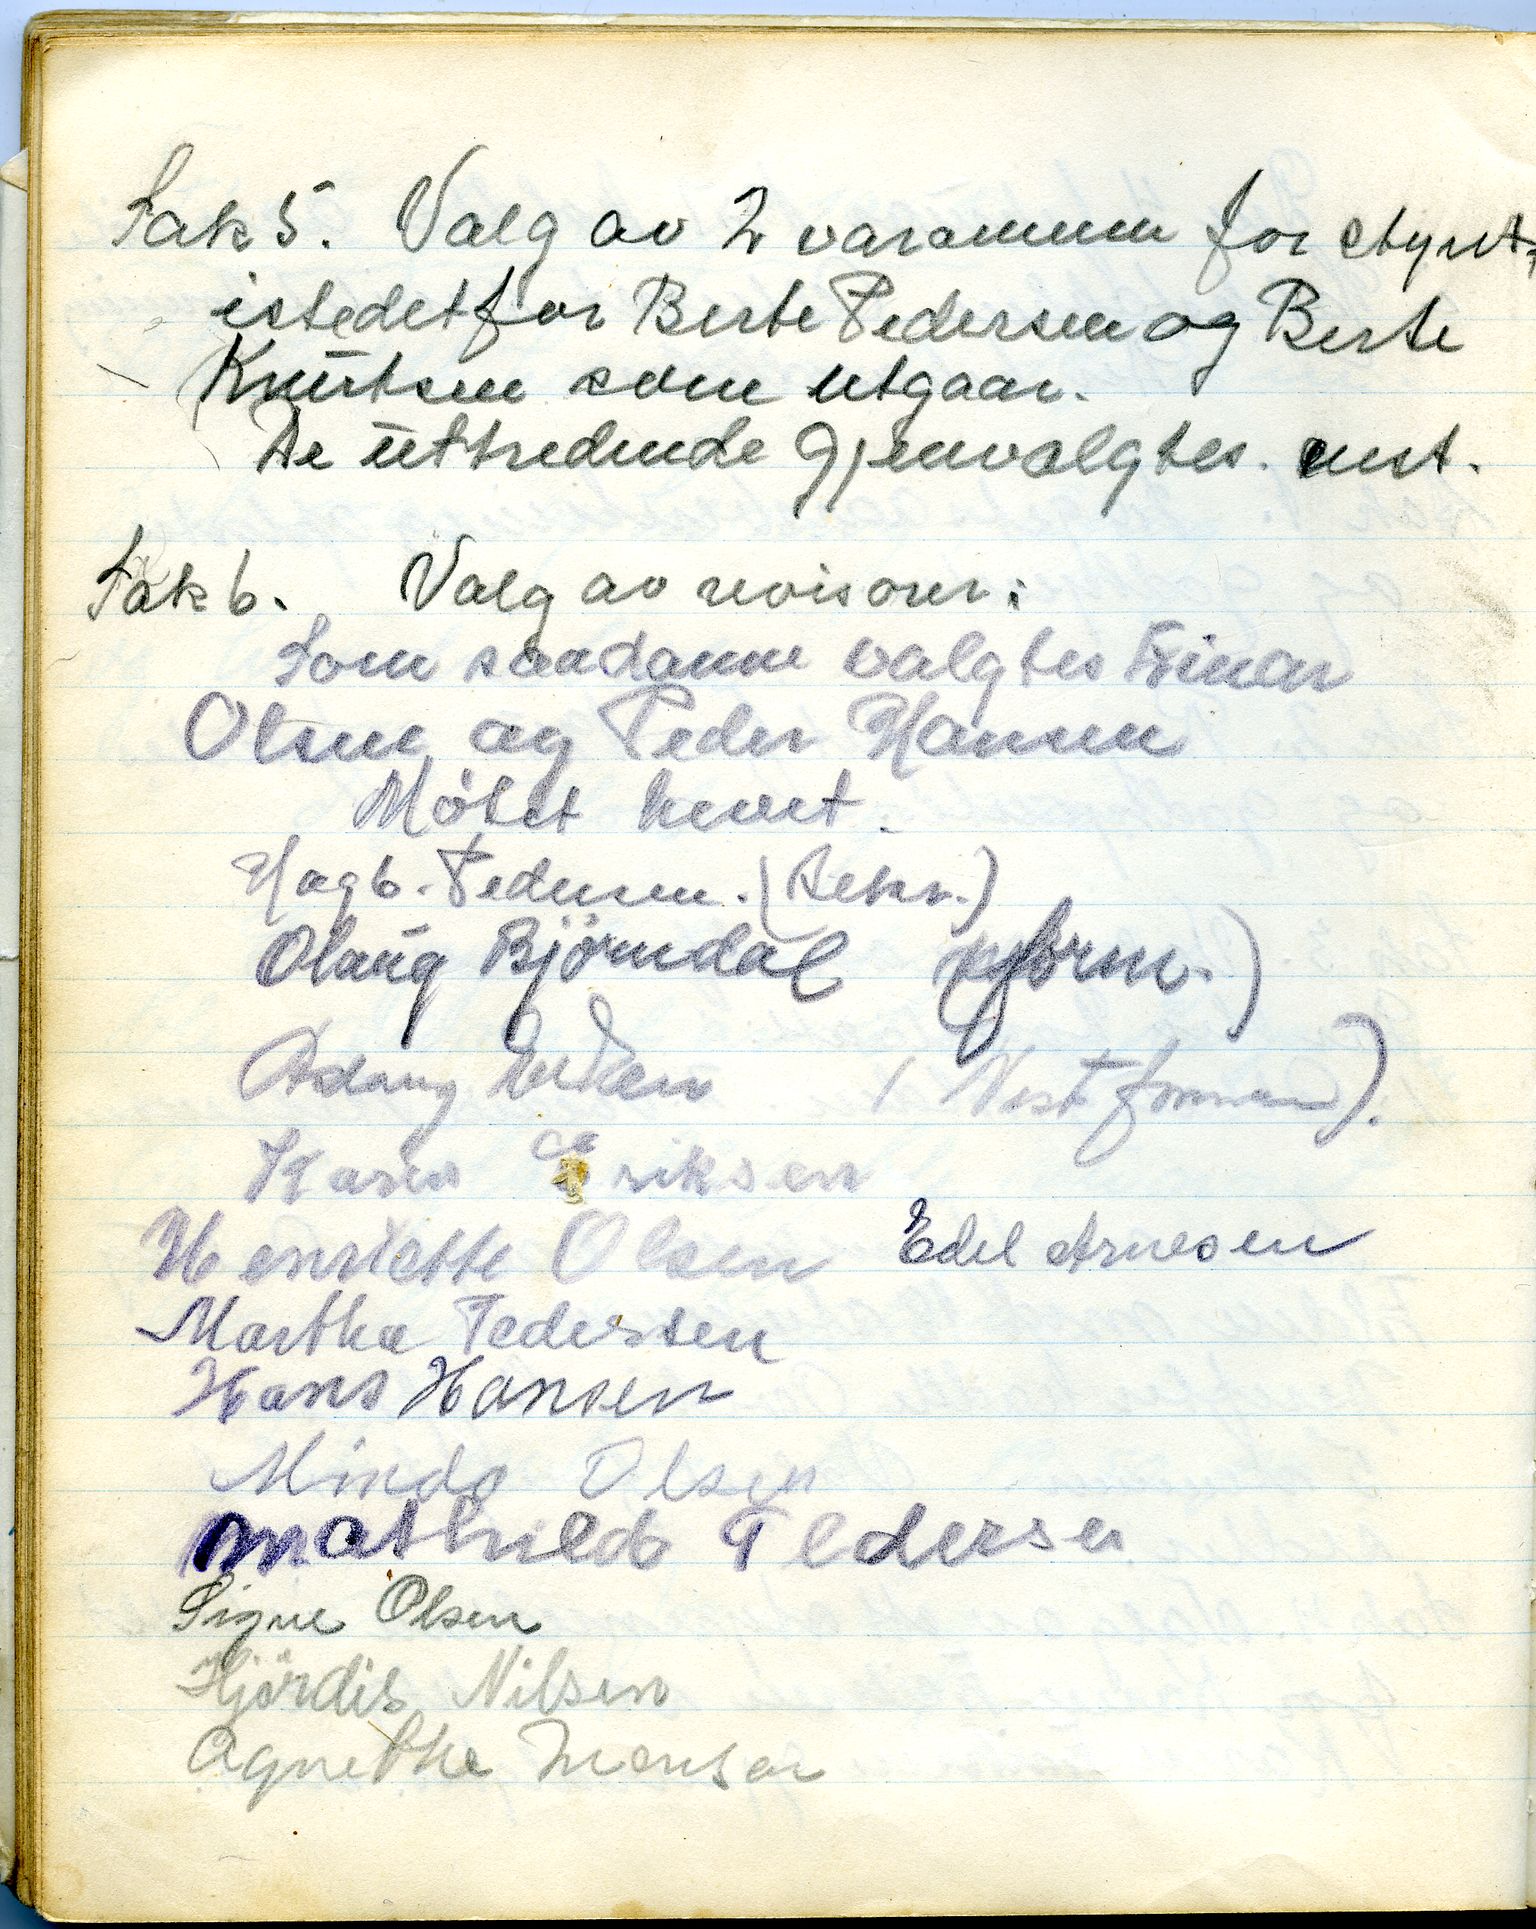 Sak 5. Valg av 2 varamenn for styret,
istedetfor Berte Pedersen og Berte
Knutsen som utgaar.
De uttredende gjenvalgtes. enst.
Sak 6. Valg av revisorer:
Som saadanne valgtes Einar
Olsen og Peder Hansen
Møtet hevet.
Hagb. Pedersen. (Sekr.)
Olaug Bjørndal (form.)
Aslaug (Vest formann).
Karen Eriksen
Henriette Olsen Edel Arnesen
Martha Pedersen
Hans Hansen
Minda Olsen
Mathilde Pedersen
Signe Olsen
Hjördis Nilsen
Agnethe Monsen